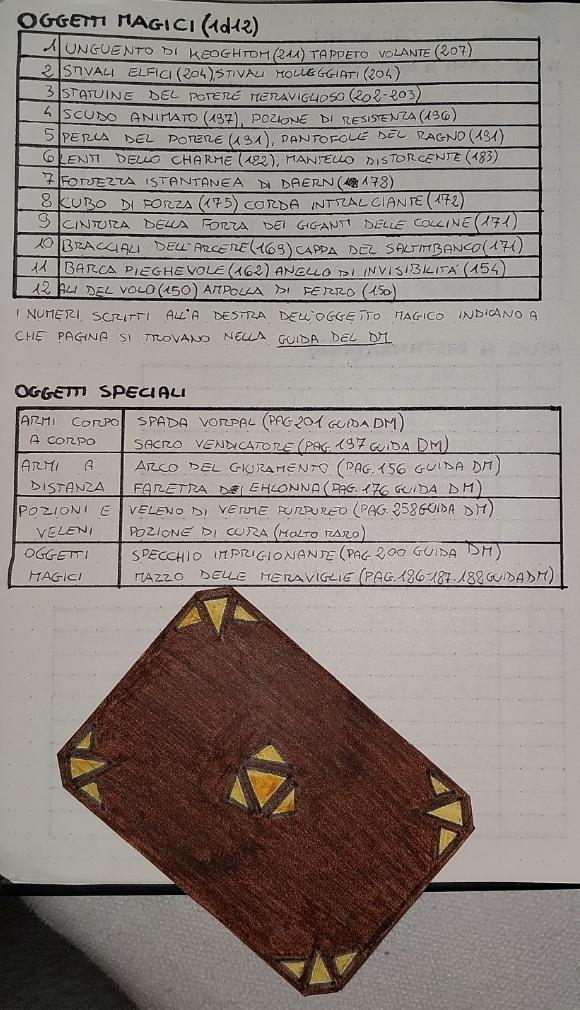 OGGETTI MAGICI (1d12)
1 UNGUENTO DI KEOGHTOM (211) TAPPETO VOLANTE (207)
2 STIVALI ELFICI (204), STIVALI MOLLEGGIATI (204)
3 STATUINE DEL POTERE MERAVIGLIOSO (202-203)
4 SCUDO ANIMATO (197), POZIONE DI RESISTENZA (196)
5 PERLA DEL POTERE (191), PANTOFOLE DEL RAGNO (191)
6 LENTI DELLO CHARME (182), MANTELLO DISTORCENTE (183)
7 FORTEZZA ISTANTANEA DI DAERN (178)
8 CUBO DI FORZA (175) CORDA INTRALCIANTE (172)
9 CINTURA DELLA FORZA DEI GIGANTI DELLE COLLINE (171)
10 BRACCIALI DELL'ARCERE (169) CAPPA DEL SALTIMBANCO (171)
11 BARCA PIEGHEVOLE (162) ANELLO DI INVISIBILITÁ (154)
12 ALI DEL VOLO (150) AMPOLLA DI FERRO (150)
I NUMERI SCRITTI ALL'A DESTRA DELL'OGGETTO MAGICO INDICANO A
CHE PAGINA SI TROVANO NELLA GUIDA DEL DM
OGGETTI SPECIALI
ARMI CORPO SPADA VORPAL (PAG 201 GUIDA DM)
A CORPO SACRO VENDICATORE (PAG. 197 GUIDA DM)
ARMI A ARCO DEL GIURAMENTO (PAG. 156 GUIDA DM)
DISTANZA FARETRA DI EHLONNA (PAG. 176 GUIDA DM)
POZIONI E VELENO DI VERME PURPUREO (PAG. 258 GUIDA DM)
VELENI POZIONE DI CURA (MOLTO RARO)
OGGETTI SPECCHIO IMPRIGIONANTE (PAG. 200 GUIDA DM)
MAGICI MAZZO DELLE MERAVIGLIE (PAG. 186-187-188 GUIDA DM)